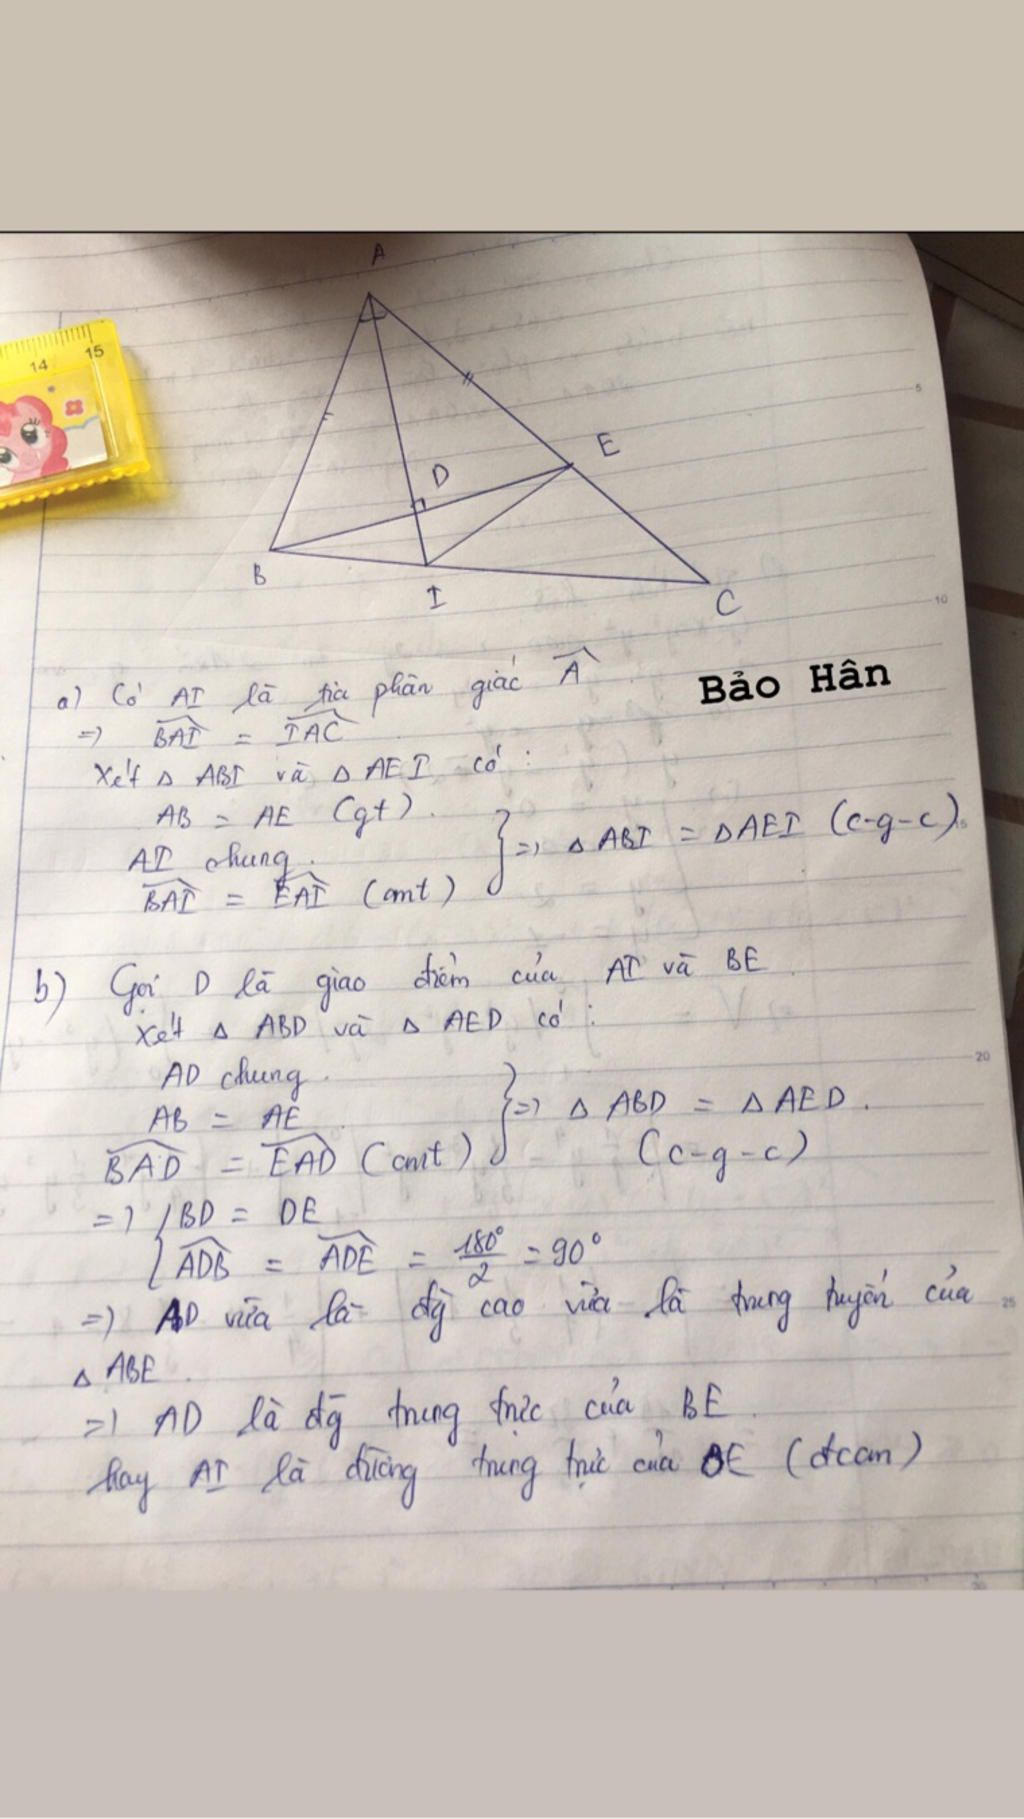 14 15
A
5
E
D
B
I
C
10
a) Có AI là tia phân giác Â
Bảo Hân
=> BAI = IAC
Xét △ ABI và △ AEI có :
AB = AE (gt).
AI chung.
BAI = EAI (cmt)
} => △ ABI = △AEI (c-g-c)
15
b) Gọi D là giao điểm của AI và BE
Xét △ ABD và △ AED có :
20
AD chung.
AB = AE.
BAD = EAD (cmt)
} => △ ABD = △AED.
(c-g-c)
=> { BD = DE
ADB = ADE = 180°/2 = 90°
=> AD vừa là đg cao vừa là trung tuyến của
25
△ ABE.
=> AD là đg trung trực của BE.
hay AI là đường trung trực của BE (đccm)
30